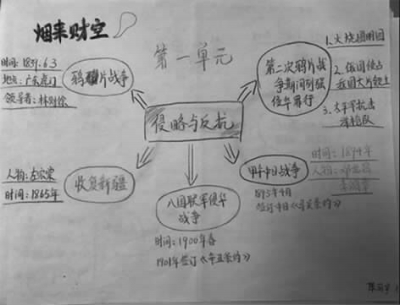 烟来财空
第一单元
鸦片战争
时间：1839.6.3
地点：广东虎门
领导者：林则徐
第二次鸦片战
争期间列强
侵华罪行
1.火烧圆明园
2.俄国侵占
我国大片领土
3.太平军抗击
洋枪队
侵略与反抗
收复新疆
人物：左宗棠
时间：1865年
八国联军侵华
战争
时间：1900年春
1901年签订《辛丑条约》
甲午中日战争
时间：1894年